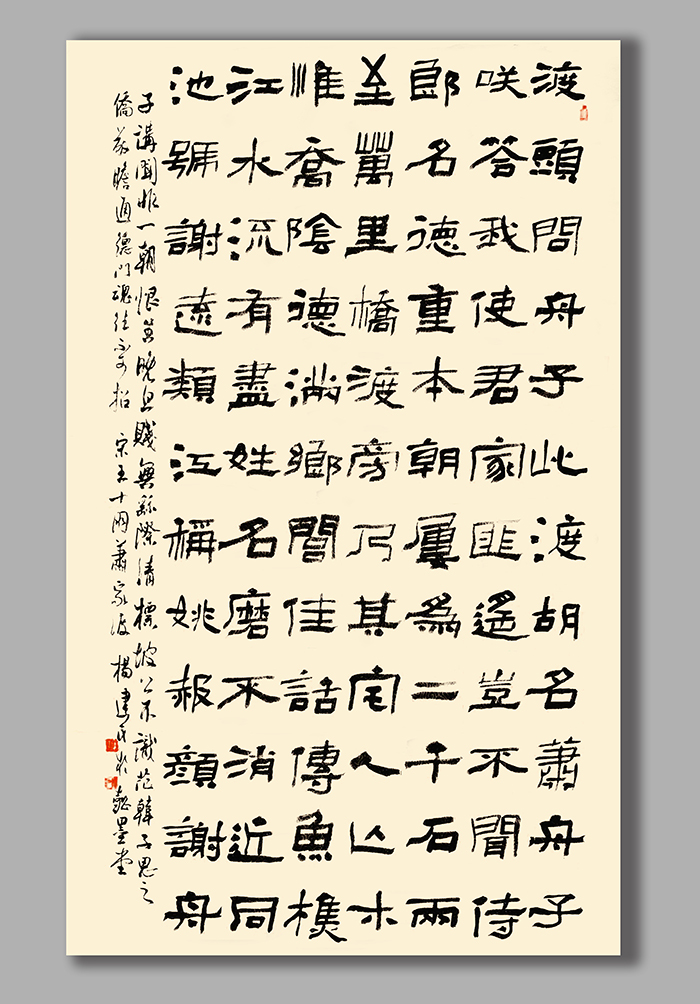 渡頭問舟子此渡胡名蕭舟子
咲答我使君家匪遙豈不聞侍
郎名德重本朝屢為二千石兩
至萬里橋渡旁乃其宅人亡木
惟喬陰德滿鄉閭佳話傳魚樵
江水流有盡姓名磨不消近同
池號謝遠類江稱姚赧顏謝舟
子講聞一朝恨豈晚且賤無繇際清標坡公不識范韓子思之
瞻通德門魂往不可招 宋王十朋蕭家渡 楊建民於墨堂